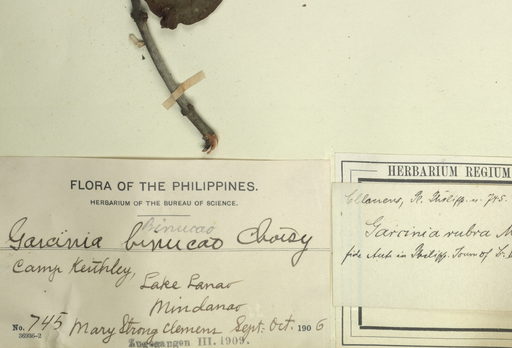 FLORA OF THE PHILIPPINES.
HERBARIUM OF THE BUREAU OF SCIENCE.
Binucao
Garcinia binucao Choisy
Camp Keithley,
Lake Lanao
Mindanao
No. 745 Mary Strong Clemens Sept.-Oct. 1906
36936-2
Zugegangen III. 1909.
HERBARIUM REGIUM
Clemens, Pl. Philipp. n. 745.
Garcinia rubra M
fide Auct. in Philipp. Journ. of